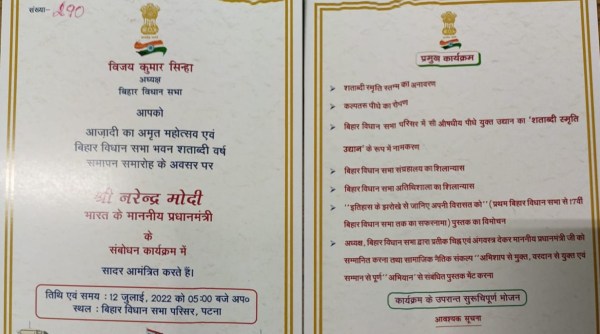 संख्या- 290
विजय कुमार सिन्हा
अध्यक्ष
बिहार विधान सभा
आपको
आज़ादी का अमृत महोत्सव एवं
बिहार विधान सभा भवन शताब्दी वर्ष
समापन समारोह के अवसर पर
श्री नरेन्द्र मोदी
भारत के माननीय प्रधानमंत्री
के
संबोधन कार्यक्रम में
सादर आमंत्रित करते हैं।
तिथि एवं समय : 12 जुलाई, 2022 को 05:00 बजे अप०
स्थल : बिहार विधान सभा परिसर, पटना
प्रमुख कार्यक्रम
शताब्दी स्मृति स्तम्भ का अनावरण
कल्पतरू पौधे का रोपण
बिहार विधान सभा परिसर में सौ औषधीय पौधे युक्त उद्यान का 'शताब्दी स्मृति
उद्यान' के रूप में नामकरण
बिहार विधान सभा संग्रहालय का शिलान्यास
बिहार विधान सभा अतिथिशाला का शिलान्यास
"इतिहास के झरोखे से जानिए अपनी विरासत को" (प्रथम बिहार विधान सभा से 17वीं
बिहार विधान सभा तक का सफरनामा) पुस्तक का विमोचन
अध्यक्ष, बिहार विधान सभा द्वारा प्रतीक चिह्न एवं अंगवस्त्र देकर माननीय प्रधानमंत्री जी को
सम्मानित करना तथा सामाजिक नैतिक संकल्प "अभिशाप से मुक्त, वरदान से युक्त एवं
सम्मान से पूर्ण" अभियान' से संबंधित पुस्तक भेंट करना
कार्यक्रम के उपरान्त सुरूचिपूर्ण भोजन
आवश्यक सूचना